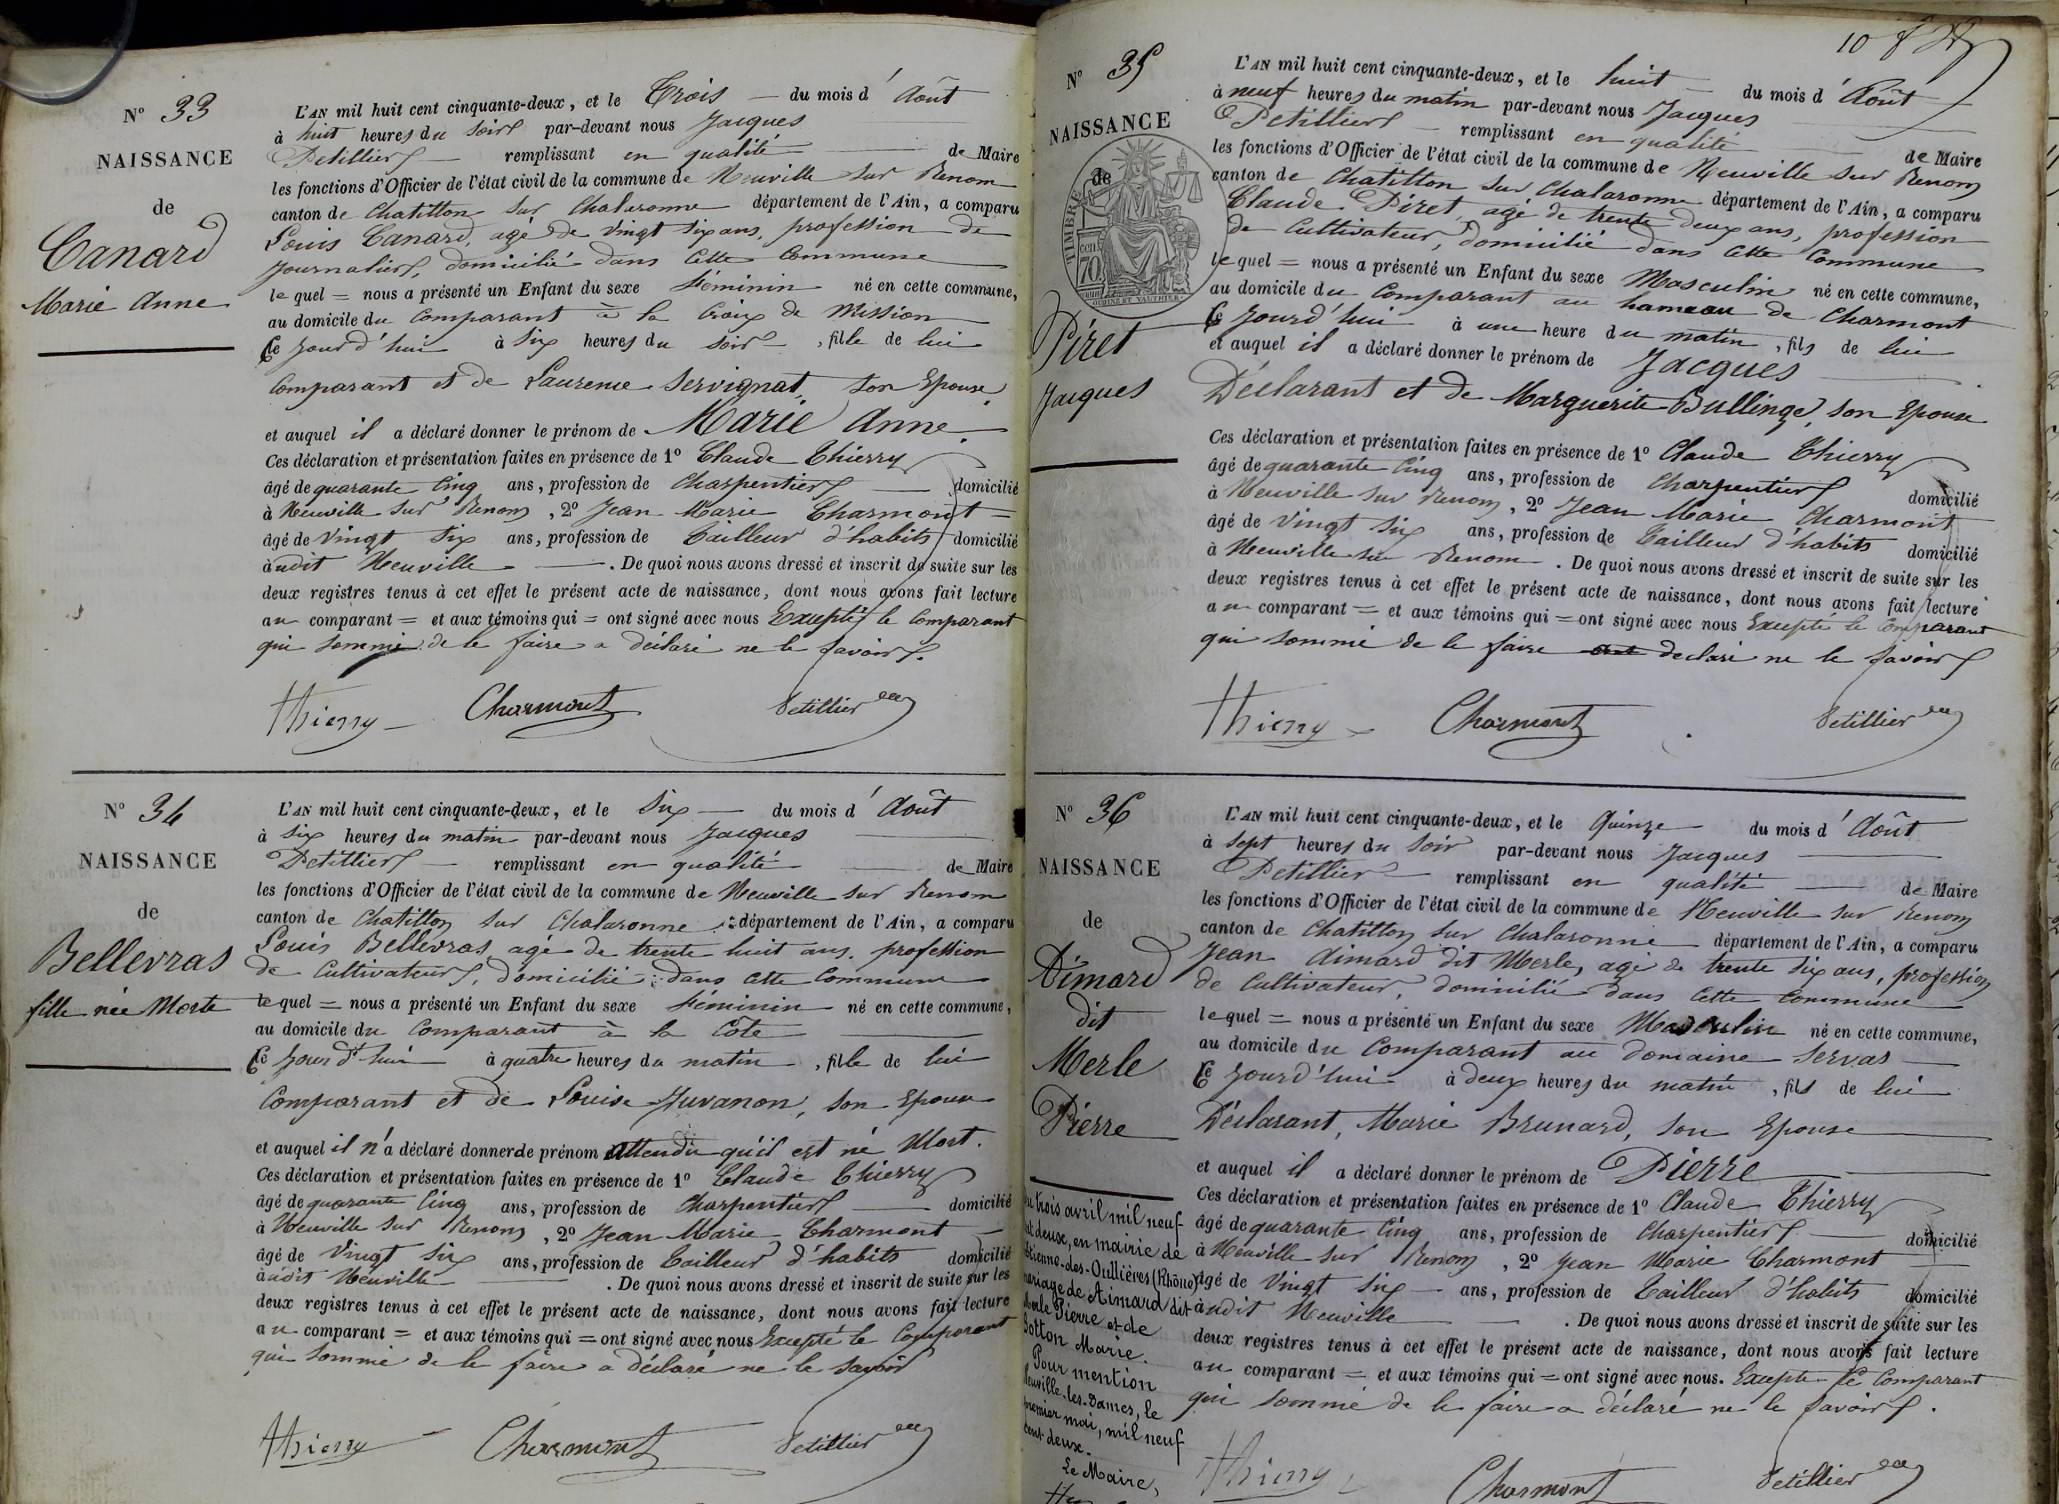 N° 33
NAISSANCE
de
Canard
Marie Anne
L'AN mil huit cent cinquante-deux, et le Trois — du mois d'Août
à huit heures du soir par-devant nous Jacques
Petillier — remplissant en qualité — de Maire
les fonctions d'Officier de l'état civil de la commune de Neuville sur Renom
canton de Chatillon sur Chalaronne département de l'Ain, a comparu
Louis Canard, agé de vingt six ans, profession de
Journalier, domicilié dans cette Commune
lequel = nous a présenté un Enfant du sexe féminin né en cette commune,
au domicile du Comparant à la Croix de Mission
Ce jourd'hui à six heures du soir, fille de lui
Comparant et de Laurence Servignat, son Epouse
et auquel il a déclaré donner le prénom de Marie Anne.
Ces déclaration et présentation faites en présence de 1° Claude Thierry
âgé de quarante Cinq ans, profession de Charpentier — domicilié
à Neuville sur Renom, 2° Jean Marie Charmont =
âgé de vingt six ans, profession de Tailleur d'habits domicilié
audit Neuville — . De quoi nous avons dressé et inscrit de suite sur les
deux registres tenus à cet effet le présent acte de naissance, dont nous avons fait lecture
au comparant = et aux témoins qui = ont signé avec nous Excepté le Comparant
qui sommé de le faire a déclaré ne le savoir.
Thierry Charmont Petillier
N° 34
NAISSANCE
de
Bellevras
fille née Morte
L'AN mil huit cent cinquante-deux, et le Six — du mois d'Août
à six heures du matin par-devant nous Jacques
Petillier — remplissant en qualité — de Maire
les fonctions d'Officier de l'état civil de la commune de Neuville sur Renom
canton de Chatillon sur Chalaronne département de l'Ain, a comparu
Louis Bellevras agé de trente huit ans, profession
de Cultivateur, domicilié dans cette Commune
lequel = nous a présenté un Enfant du sexe féminin né en cette commune,
au domicile du Comparant à la Côte
Ce jourd'hui à quatre heures du matin, fille de lui
Comparant et de Louise Juvanon, son Epouse
et auquel il n'a déclaré donner de prénom attendu qu'il est né Mort.
Ces déclaration et présentation faites en présence de 1° Claude Thierry
âgé de quarante Cinq ans, profession de Charpentier — domicilié
à Neuville sur Renom, 2° Jean Marie Charmont
âgé de vingt six ans, profession de Tailleur d'habits domicilié
audit Neuville — . De quoi nous avons dressé et inscrit de suite sur les
deux registres tenus à cet effet le présent acte de naissance, dont nous avons fait lecture
au comparant = et aux témoins qui = ont signé avec nous Excepté le Comparant
qui sommé de le faire a déclaré ne le savoir
Thierry Charmont Petillier
10
N° 35
NAISSANCE
de
TIMBRE
70
Piret
Jacques
L'AN mil huit cent cinquante-deux, et le huit — du mois d'Août
à neuf heures du matin par-devant nous Jacques
Petillier — remplissant en qualité — de Maire
les fonctions d'Officier de l'état civil de la commune de Neuville sur Renom
canton de Chatillon sur Chalaronne département de l'Ain, a comparu
Claude Piret, agé de trente deux ans, profession
de Cultivateur, domicilié dans cette Commune
lequel = nous a présenté un Enfant du sexe Masculin né en cette commune,
au domicile du Comparant au hameau de Charmont
Ce jourd'hui à une heure du matin, fils de lui
et auquel il a déclaré donner le prénom de Jacques
Déclarant et de Marguerite Bullinge, son Epouse
Ces déclaration et présentation faites en présence de 1° Claude Thierry
âgé de quarante Cinq ans, profession de Charpentier domicilié
à Neuville sur Renom, 2° Jean Marie Charmont
âgé de vingt six ans, profession de Tailleur d'habits domicilié
à Neuville sur Renom. De quoi nous avons dressé et inscrit de suite sur les
deux registres tenus à cet effet le présent acte de naissance, dont nous avons fait lecture
au comparant = et aux témoins qui = ont signé avec nous Excepté le Comparant
qui sommé de le faire declaré ne le savoir
Thierry Charmont Petillier
N° 36
NAISSANCE
de
Aimard
dit
Merle
Pierre
L'AN mil huit cent cinquante-deux, et le Quinze — du mois d'Août
à sept heures du soir par-devant nous Jacques
Petillier — remplissant en qualité — de Maire
les fonctions d'Officier de l'état civil de la commune de Neuville sur Renom
canton de Chatillon sur Chalaronne département de l'Ain, a comparu
Jean Aimard dit Merle, agé de trente six ans, profession
de Cultivateur, domicilié dans cette Commune
lequel = nous a présenté un Enfant du sexe Masculin né en cette commune,
au domicile du Comparant au domaine Servas
Ce jourd'hui à deux heures du matin, fils de lui
Déclarant, Marie Brunard, son Epouse
et auquel il a déclaré donner le prénom de Pierre
Ces déclaration et présentation faites en présence de 1° Claude Thierry
âgé de quarante Cinq ans, profession de Charpentier — domicilié
à Neuville sur Renom, 2° Jean Marie Charmont
âgé de vingt six ans, profession de Tailleur d'habits domicilié
audit Neuville — . De quoi nous avons dressé et inscrit de suite sur les
deux registres tenus à cet effet le présent acte de naissance, dont nous avons fait lecture
au comparant = et aux témoins qui = ont signé avec nous. Excepté le Comparant
qui sommé de le faire a déclaré ne le savoir.
Thierry Charmont Petillier
trois avril mil neuf
deux, en mairie de
Etienne-des-Oullières (Rhône)
mariage de Aimard dit
Merle Pierre et de
Sotton Marie.
Pour mention
Neuville-les-Dames, le
premier mai, mil neuf
cent deux.
Le Maire,